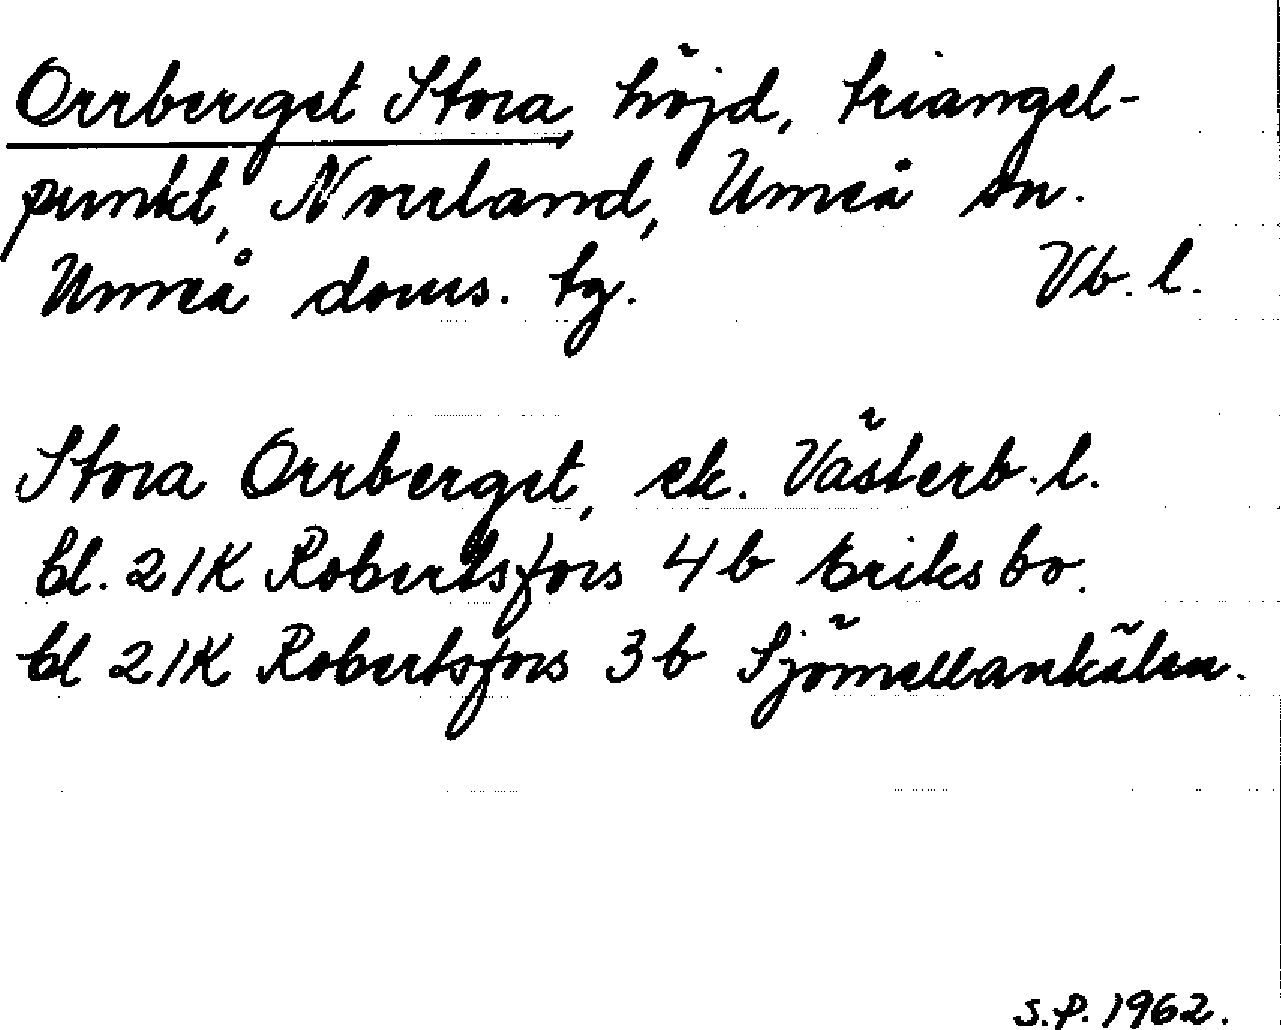 Orrberget Stora, höjd, triangel-
punkt, Norrland, Umeå sn.
Umeå doms. tg. Vb. l.
Stora Orrberget, ek. Västerb. l.
bl. 21K Robertsfors 4b Eriksbo.
bl 21K Robertsfors 3b Sjömellankälen.
S.P. 1962.